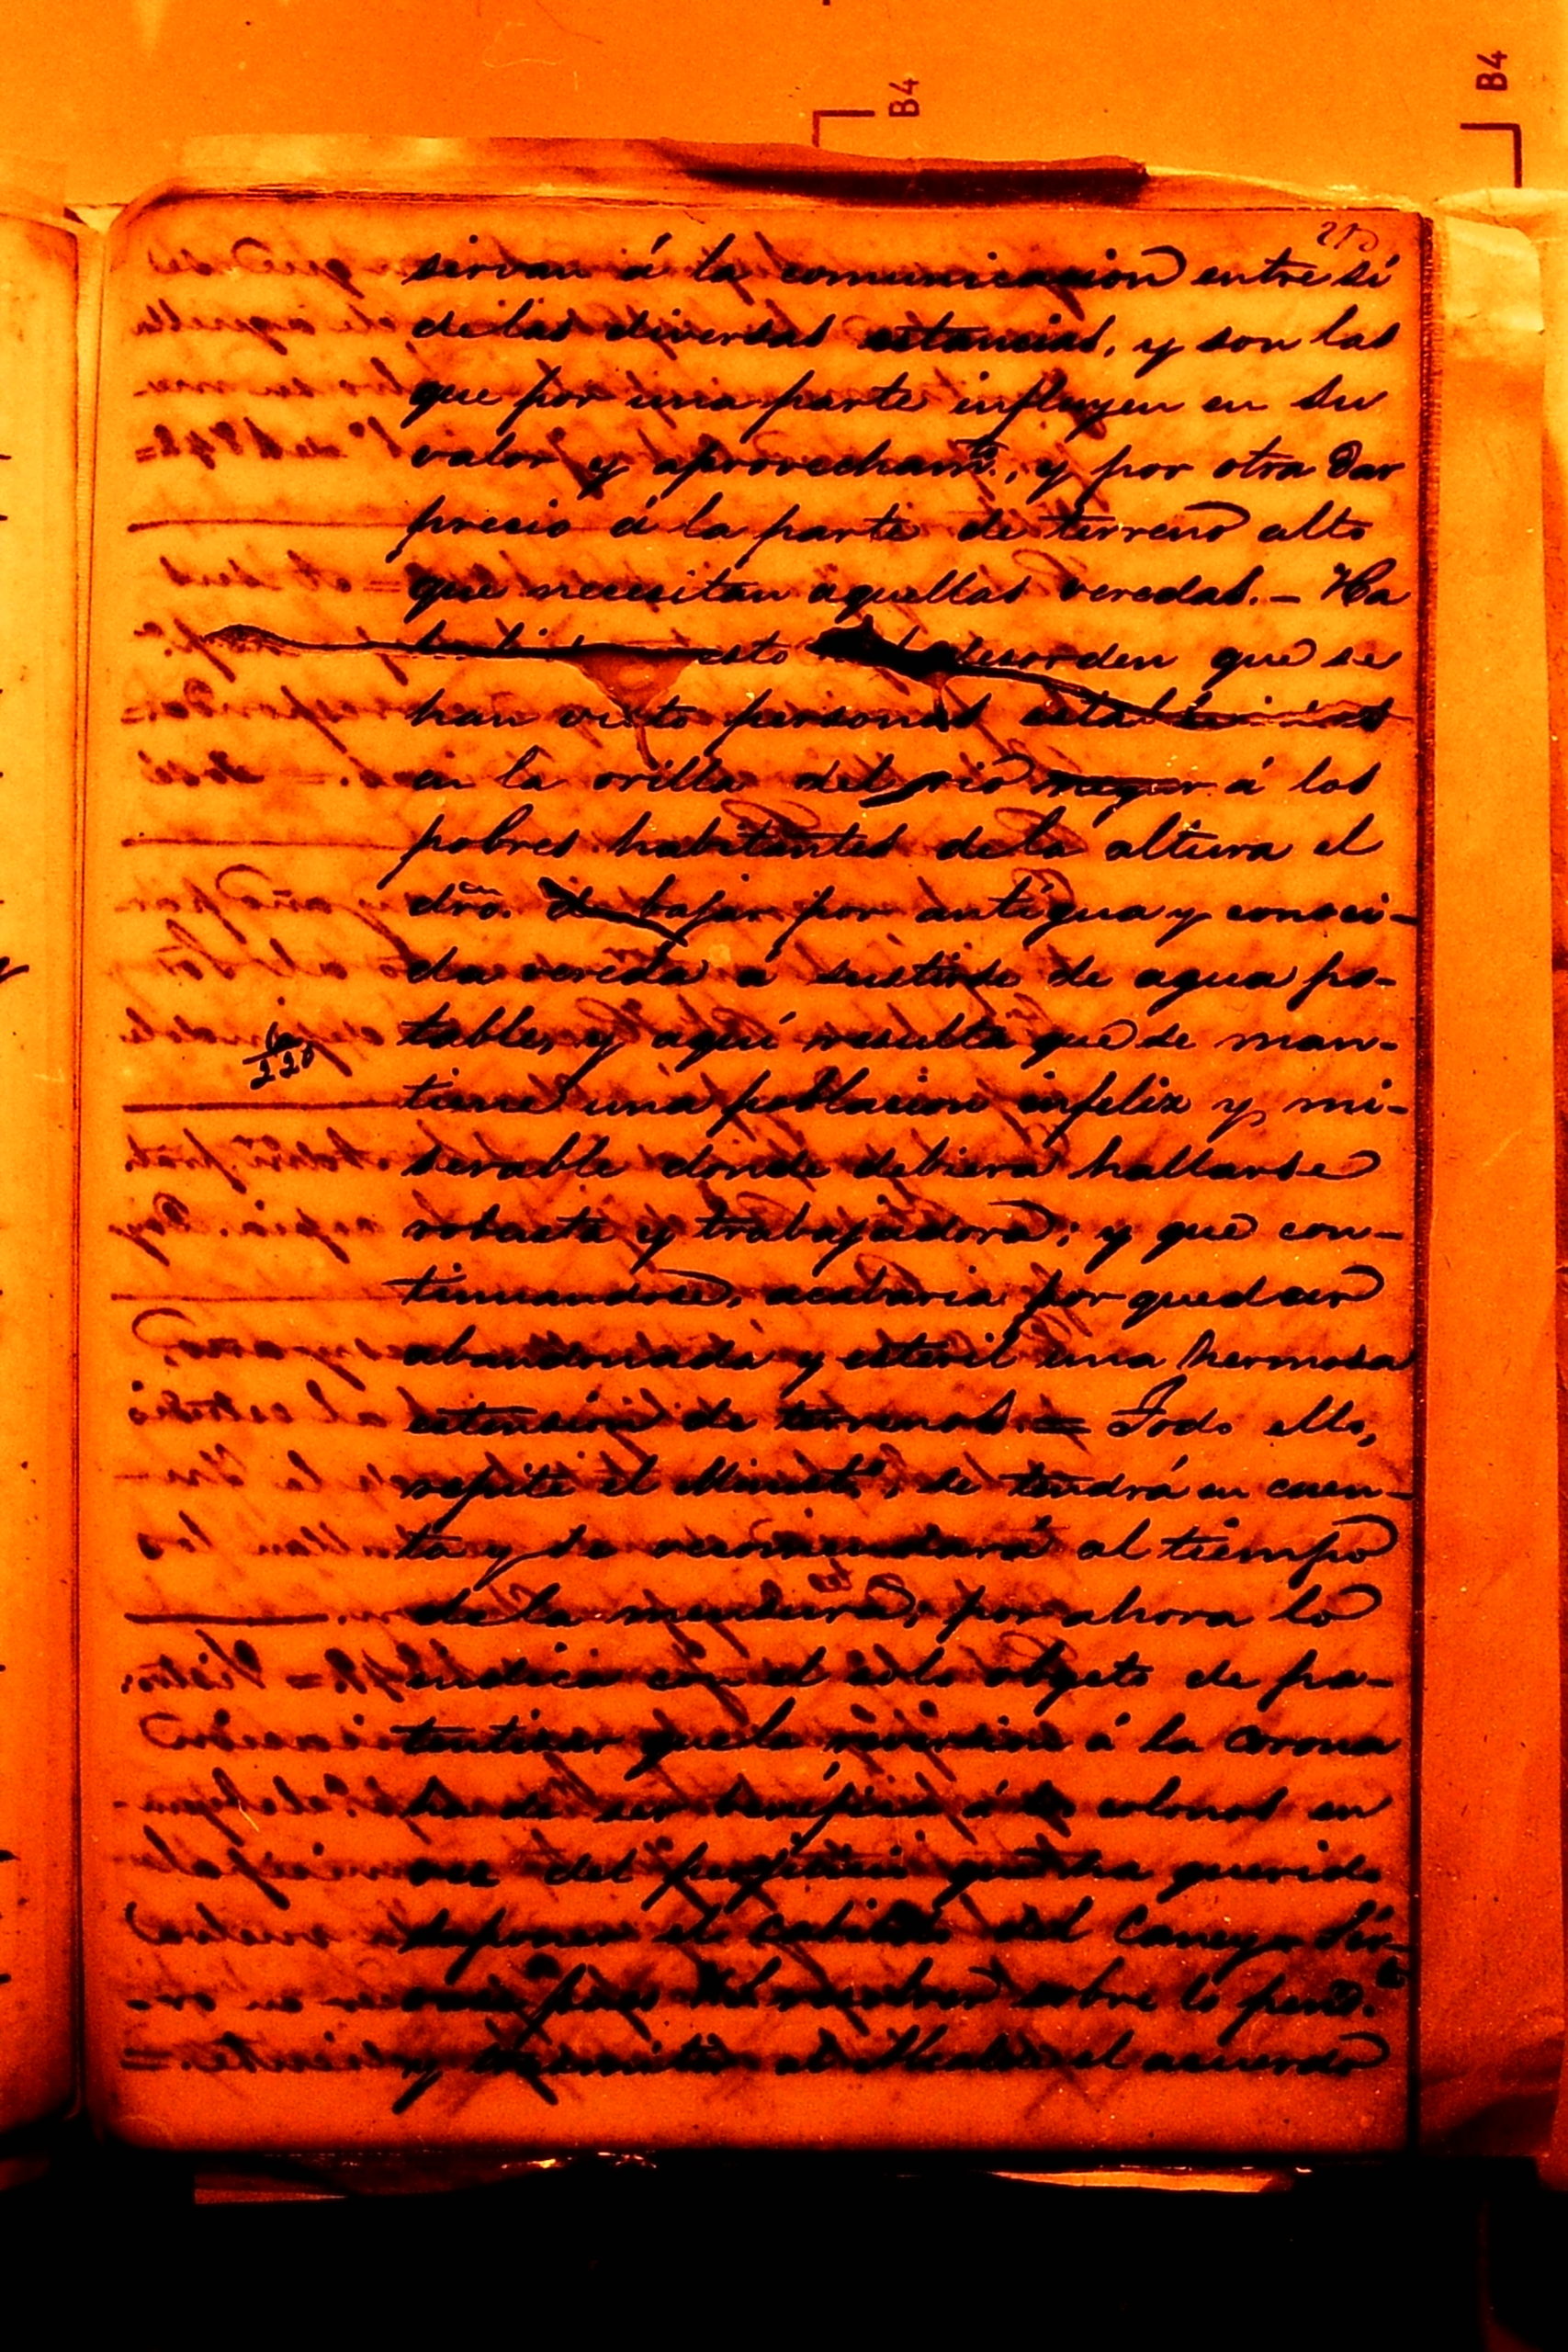 B4
B4
sirvan á la comunicacion entre si
de las diversas estancias, y son las
que por una parte influyen en su
valor y aprovecham.to, y por otra dar
precio á la parte de terreno alto
que necesitan aquellas veredas. — Ha
esto desorden que se
han visto personas establecidas
en la orilla del rio á los
pobres habitantes de la altura el
dro. de bajar por antigua y conoci-
da vereda a surtirse de agua po-
table, y aquí resulta que se man-
tiene una poblacion infeliz y mi-
serable donde debiera hallarse
robusta y trabajadora; y que con-
tinuandose, acabaria por quedar
abandonada y esteril una hermosa
estension de terrenos. = Todo ello,
repite el Minist.o, se tendrá en cuen-
ta y se recomendará al tiempo
de la mensura, por ahora lo
indica con el solo objeto de pa-
tentizar que la reversion á la Corona
ha de ser benefica á los colonos en
vez del perjuicio que ha querido
suponer el cabildo del Caney. Sir-
sobre lo
y el acuerdo